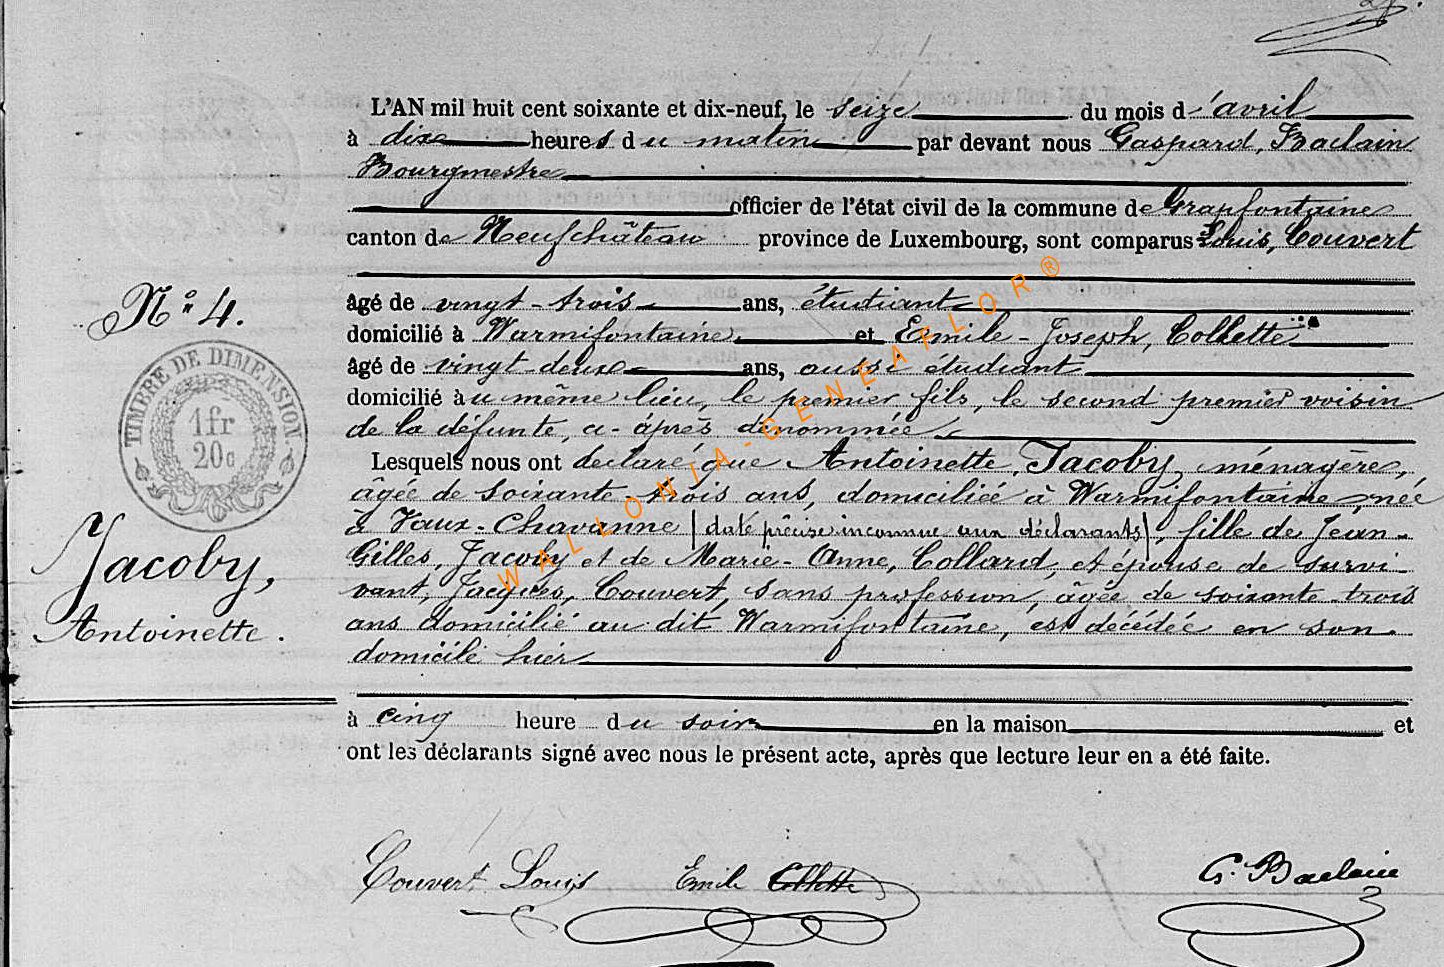 L'AN mil huit cent soixante et dix-neuf, le seize du mois d'avril
à dix heures du matin par devant nous Gaspard, Baclain
Bourgmestre
officier de l'état civil de la commune de Grapfontaine
canton de Neufchâteau province de Luxembourg, sont comparus Louis, Couvert
âgé de vingt-trois ans, étudiant
domicilié à Warmifontaine et Emile-Joseph, Collette
âgé de vingt-deux ans, aussi étudiant
domicilié au même lieu, le premier, fils, le second premier voisin
de la défunte, ci-après dénommée
Lesquels nous ont déclaré que Antoinette, Jacoby, ménagère,
âgée de soixante-trois ans, domiciliée à Warmifontaine, née
à Vaux-Chavanne (date précise inconnue aux déclarants), fille de Jean-
Gilles, Jacoby et de Marie-Anne, Collard, et épouse de survi-
vant, Jacques, Couvert, sans profession, âgée de soixante-trois
ans domicilié au dit Warmifontaine, est décédée en son
domicile hier
à cinq heure du soir en la maison et
ont les déclarants signé avec nous le présent acte, après que lecture leur en a été faite.
N° 4.
TIMBRE DE DIMENSION
1 fr
20 c
Jacoby,
Antoinette.
Couvert Louis Emile Collette G. Baclain
WALLONIA-GENEAFLOR®